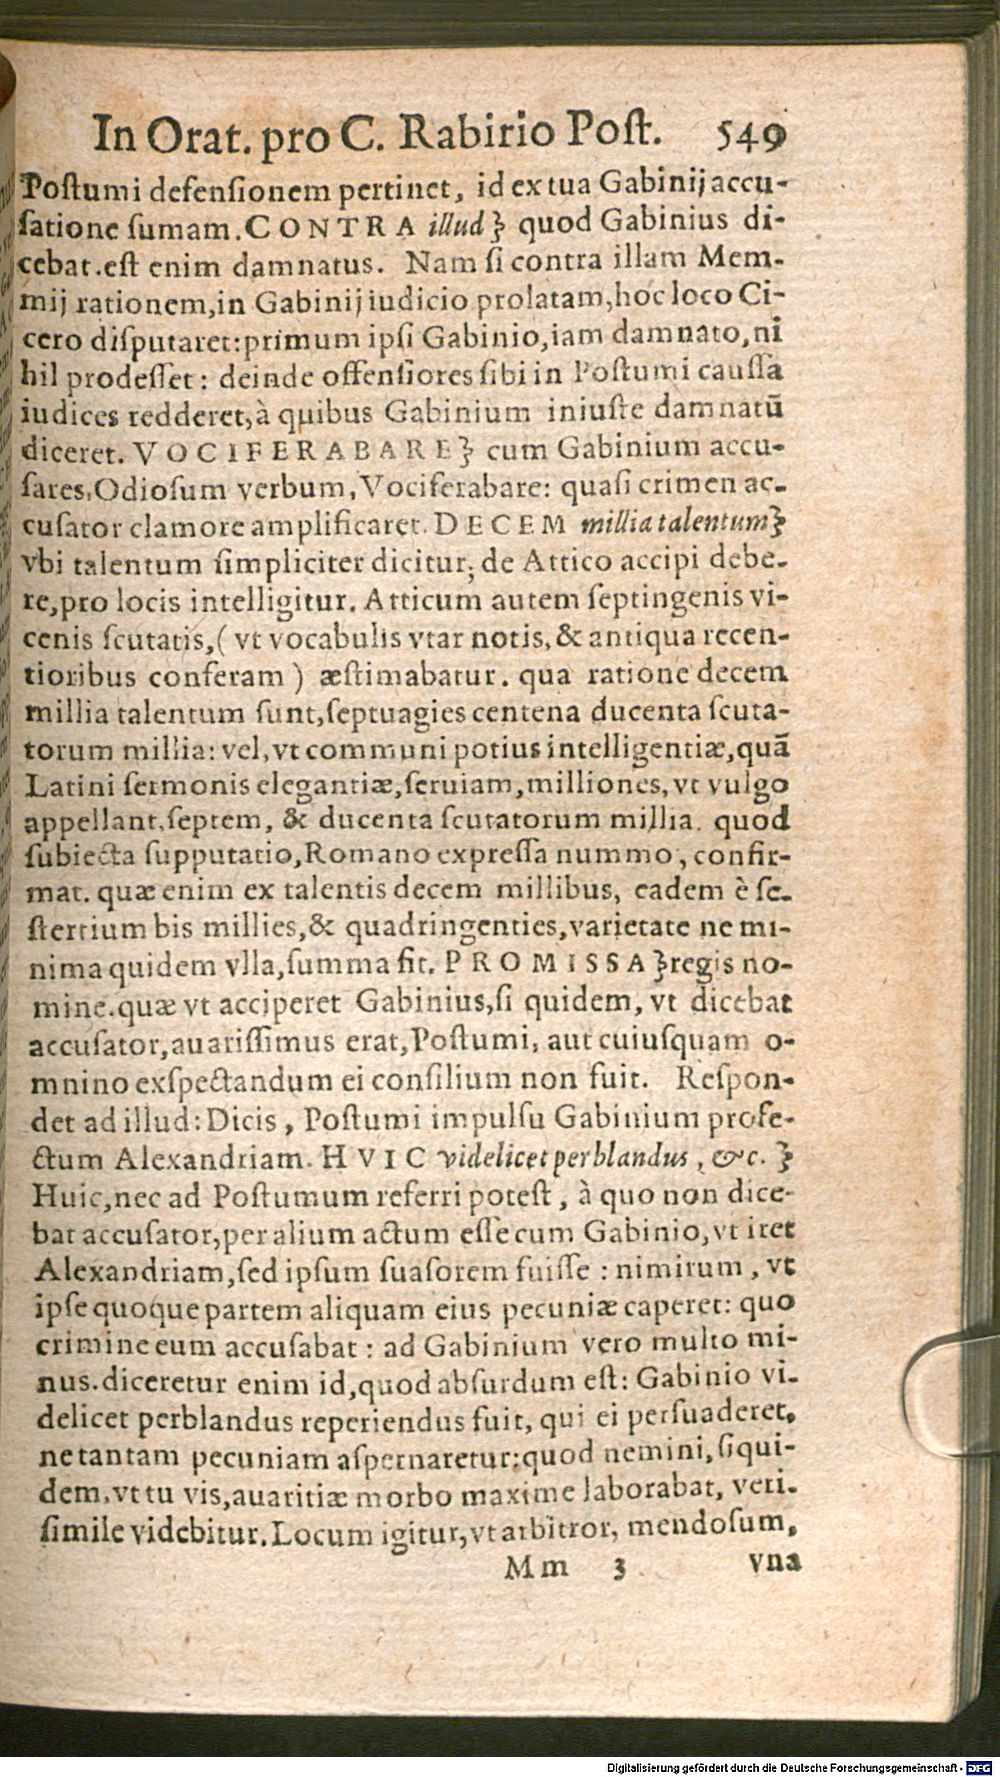 In Orat. pro C. Rabirio Poſt. 549
Poſtumi defenſionem pertinet, id ex tua Gabinij accu-
ſatione ſumam. CONTRA illud} quod Gabinius di-
cebat. eſt enim damnatus. Nam ſi contra illam Mem-
mij rationem, in Gabinij iudicio prolatam, hoc loco Ci-
cero diſputaret: primum ipſi Gabinio, iam damnato, ni
hil prodeſſet: deinde offenſiores ſibi in Poſtumi cauſſa
iudices redderet, à quibus Gabinium iniuſte damnatū
diceret. VOCIFERABARE} cum Gabinium accu-
ſares. Odioſum verbum, Vociferabare: quaſi crimen ac-
cuſator clamore amplificaret. DECEM millia talentum}
vbi talentum ſimpliciter dicitur, de Attico accipi debe-
re, pro locis intelligitur. Atticum autem ſeptingenis vi-
cenis ſcutatis, (vt vocabulis vtar notis, & antiqua recen-
tioribus conferam) æſtimabatur. qua ratione decem
millia talentum ſunt, ſeptuagies centena ducenta ſcuta-
torum millia: vel, vt communi potius intelligentiæ, quā
Latini ſermonis elegantiæ, ſeruiam, milliones, vt vulgo
appellant, ſeptem, & ducenta ſcutatorum millia. quod
ſubiecta ſupputatio, Romano expreſſa nummo, confir-
mat. quæ enim ex talentis decem millibus, eadem è ſe-
ſtertium bis millies, & quadringenties, varietate ne mi-
nima quidem vlla, ſumma fit. PROMISSA} regis no-
mine. quæ vt acciperet Gabinius, ſi quidem, vt dicebat
accuſator, auariſſimus erat, Poſtumi, aut cuiuſquam o-
mnino exſpectandum ei conſilium non fuit. Reſpon-
det ad illud: Dicis, Poſtumi impulſu Gabinium profe-
ctum Alexandriam. HVIC videlicet perblandus, &c. }
Huic, nec ad Poſtumum referri poteſt, à quo non dice-
bat accuſator, per alium actum eſſe cum Gabinio, vt iret
Alexandriam, ſed ipſum ſuaſorem fuiſſe: nimirum, vt
ipſe quoque partem aliquam eius pecuniæ caperet: quo
crimine eum accuſabat: ad Gabinium vero multo mi-
nus. diceretur enim id, quod abſurdum eſt: Gabinio vi-
delicet perblandus reperiendus fuit, qui ei perſuaderet,
ne tantam pecuniam aſpernaretur: quod nemini, ſiqui-
dem, vt tu vis, auaritiæ morbo maxime laborabat, veri-
ſimile videbitur. Locum igitur, vt arbitror, mendoſum,
Mm 3 vna
Digitalisierung gefördert durch die Deutsche Forschungsgemeinschaft - DFG